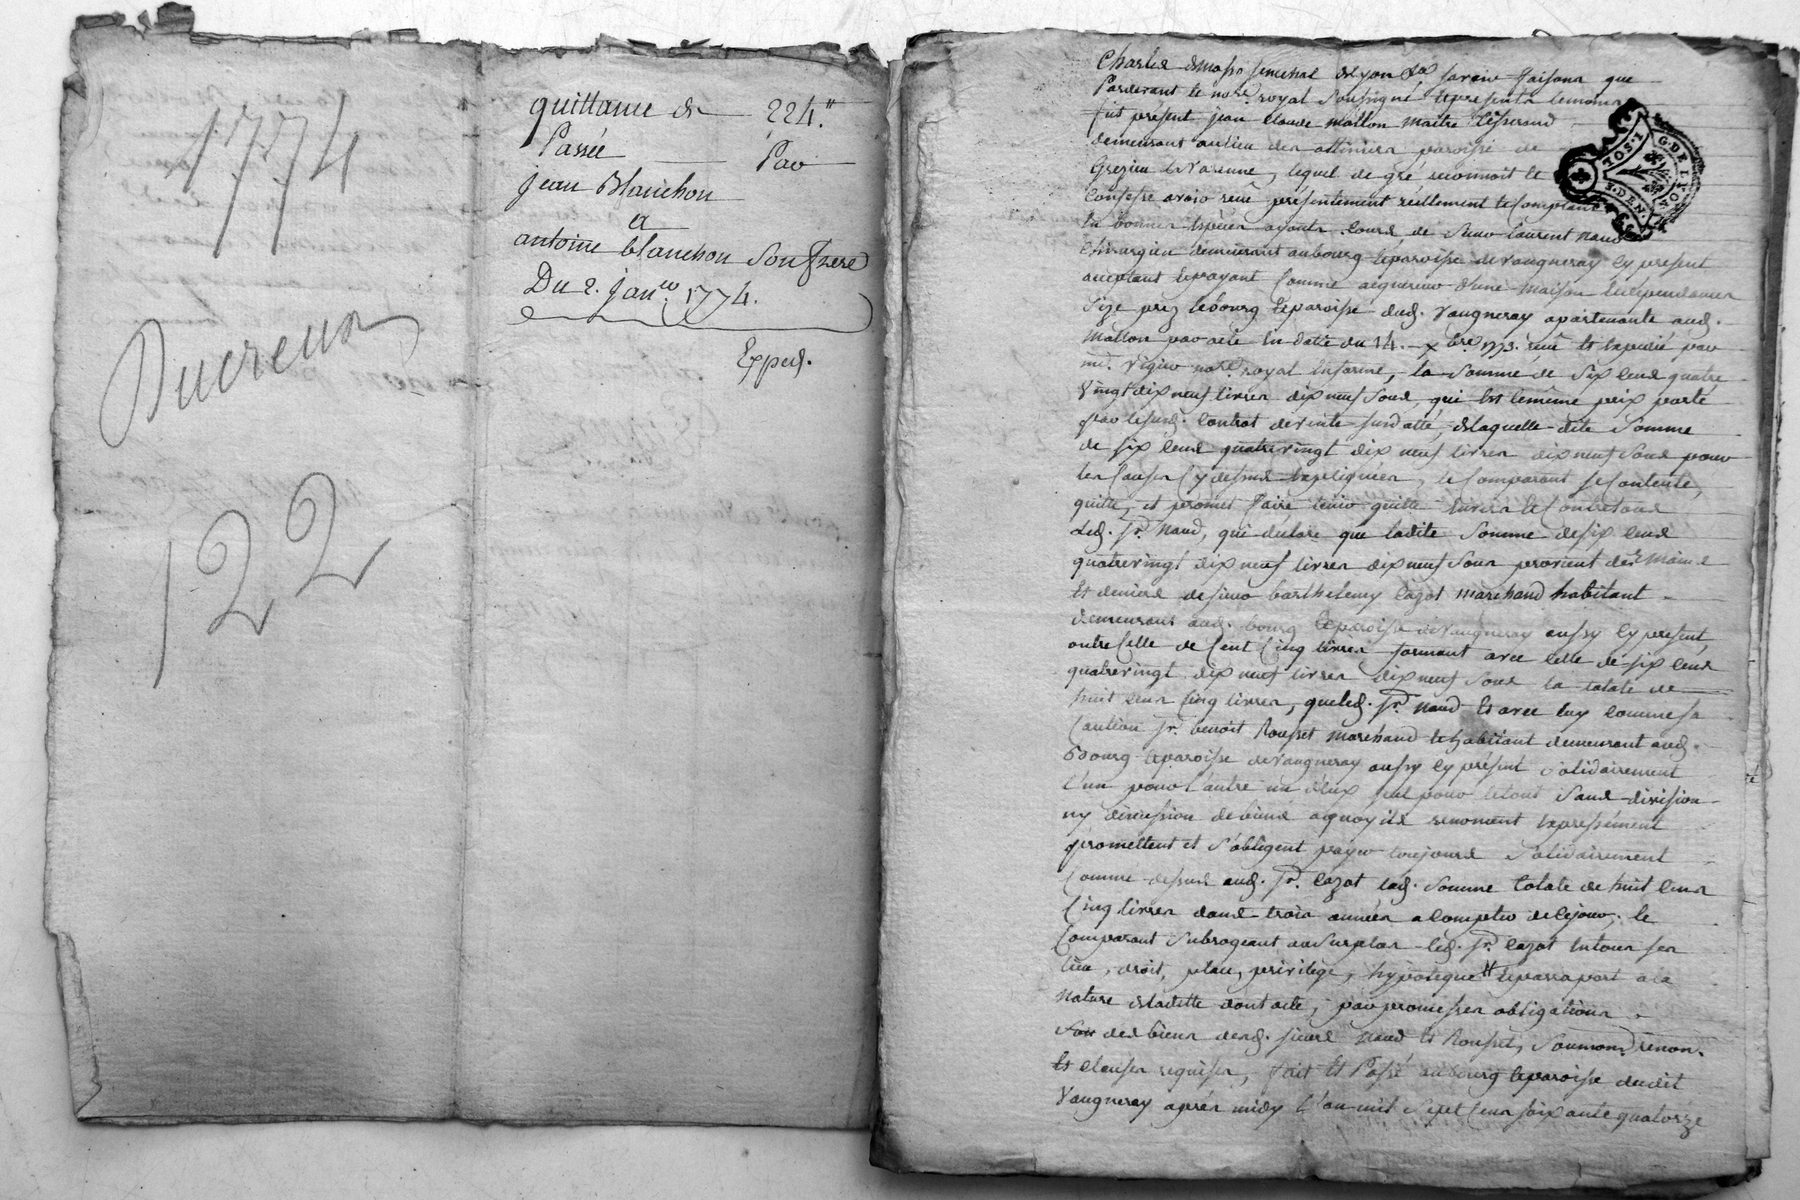 1774
Ducreux
122
quittance de 224.tt
Passée Par
Jean Blanchon
a
antoine blanchon Son frere
Du 2. Janer. 1774.
Exped.
Charles de masso senechal de lyon &a savoir faisons que
Pardevant le nore. royal soussigné et presents temoins
fut présent jean claude mollon maitre tisserand
demeurant au lieu des attiniers paroisse de
Grezieu la Varenne, lequel de gré reconnoit et
confesse avoir reçu présentement réellement et comptant
en bonnes especes ayants cours, de sieur laurent naud
chirurgien demeurant au bourg et paroisse de vaugneray cy present
acceptant et payant comme acquereur d'une maison et dependances
size prez le bourg et paroisse dud. Vaugneray apartenante aud.
mollon par acte en datte du 14. xbre 1773. reçu et expedié par
me. vigier nore. royal en forme, la somme de six cens quatre
vingt dix neuf livres dix neuf sous, qui est le même prix porté
par le susd. contrat de vente susdatté, de laquelle dite somme
de six cens quatrevingt dix neuf livres dix neuf sous pour
les causes cy dessus expliquées, le comparant se contente,
quitte, et promet faire tenir quitte envers et contre tous
led. sr. naud, qui declare que ladite somme de six cens
quatrevingt dix neuf livres dix neuf sous provient des mains
et deniers de sieur barthelemy cazot marchand habitant
demeurant aud. bourg et paroisse de vaugneray aussy cy present,
outre celle de cent cinq livres formant avec celle de six cens
quatrevingt dix neuf livres dix neuf sous la totale de
huit cens cinq livres, que led. sr. naud et avec luy comme sa
caution sr. benoit Rousset marchand et habitant demeurant aud.
bourg et paroisse de vaugneray aussy cy présent solidairement
l'un pour l'autre un d'eux seul pour le tout sans division
ny discussion de biens a quoy ils renoncent expressément
promettent et s'obligent payer toujours solidairement
comme dessus aud. sr. cazot lad. somme totale de huit cens
cinq livres dans trois années a compter de ce jour, le
comparant subrogeant au surplus led. sr. cazot en tous ses
lieu, droit, place, privilège, hypoteque et par raport a la
nature de ladette dont acte, par promesses obligations
des biens desd. sieurs naud et Rousset, soumon. renon.
et clauses requises, fait et Passé au bourg et paroisse dudit
Vaugneray aprés midy l'an mil sept cens soixante quatorze
G. DE LYON